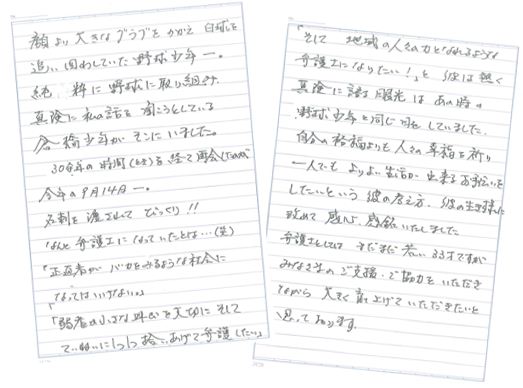 顔より大きなグラブをかかえ 白球を
追い回わしていた野球少年ー。
純粋に野球に取り組み
真険に私の話を聞こうとしている
橋少年がそこにいました。
年の時間を経て再会したのが
今年の9月14日ー。
名刺を渡されてびっくり!!
なんと弁護士になっていたとは…(笑)
「正直者がバカをみるような社会に
なってはいけない。」
「弱者の小さな叫びを大切にそして
ていねいに1つ1つ拾いあげて弁護したい」
「そして 地域の人々の力となれるような
弁護士になりたい!」と 彼は熱く
真険に語る眼光は あの時の
野球少年と同じ目をしていました。
自分の裕福よりも人々の幸福を祈り
一人でも よりよい生活が出来るお手伝いを
したいという 彼の考え方、彼の生き様に
改めて 感心、感銘いたしました
弁護士としては まだまだ若い33才ですが
みなさまの ご支援・ご協力をいただき
ながら 大きく育て上げていただきたいと
思っております。